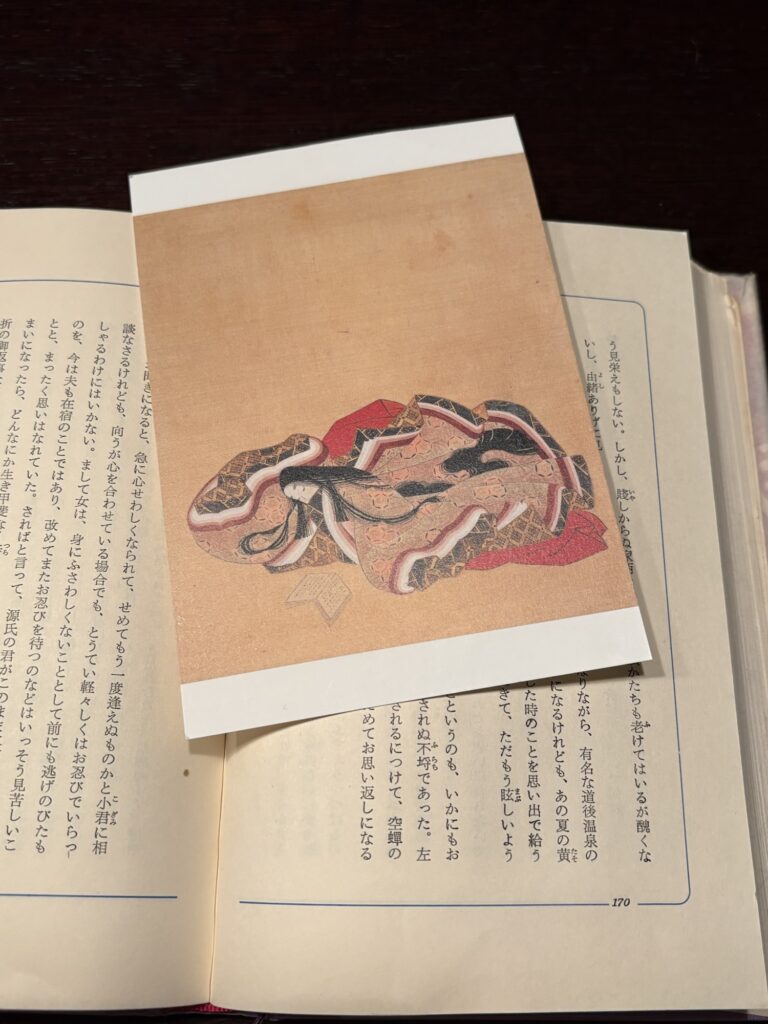 う見栄えもしない。しかし、賤しからぬ かたちも老けてはいるが醜くな
いし、由緒ありげにも なりながら、有名な道後温泉の
になるけれども、あの夏の黄
した時のことを思い出で給う
きて、ただもう眩しいよう
というのも、いかにもお
されぬ不埒であった。左
されるにつけて、空蟬の
ためてお思い返しになる
170
聞きになると、急に心せわしくなられて、せめてもう一度逢えぬものかと小君に相
談なさるけれども、向うが心を合わせている場合でも、とうてい軽々しくはお忍びでいらっ
しゃるわけにはいかない。まして女は、身にふさわしくないこととして前にも逃げのびたも
のを、今は夫も在宿のことではあり、改めてまたお忍びを待つのなどはいっそう見苦しいこ
とと、まったく思いはなれていた。さればと言って、源氏の君がこのまま
まいになったら、どんなにか生き甲斐
折の御返事